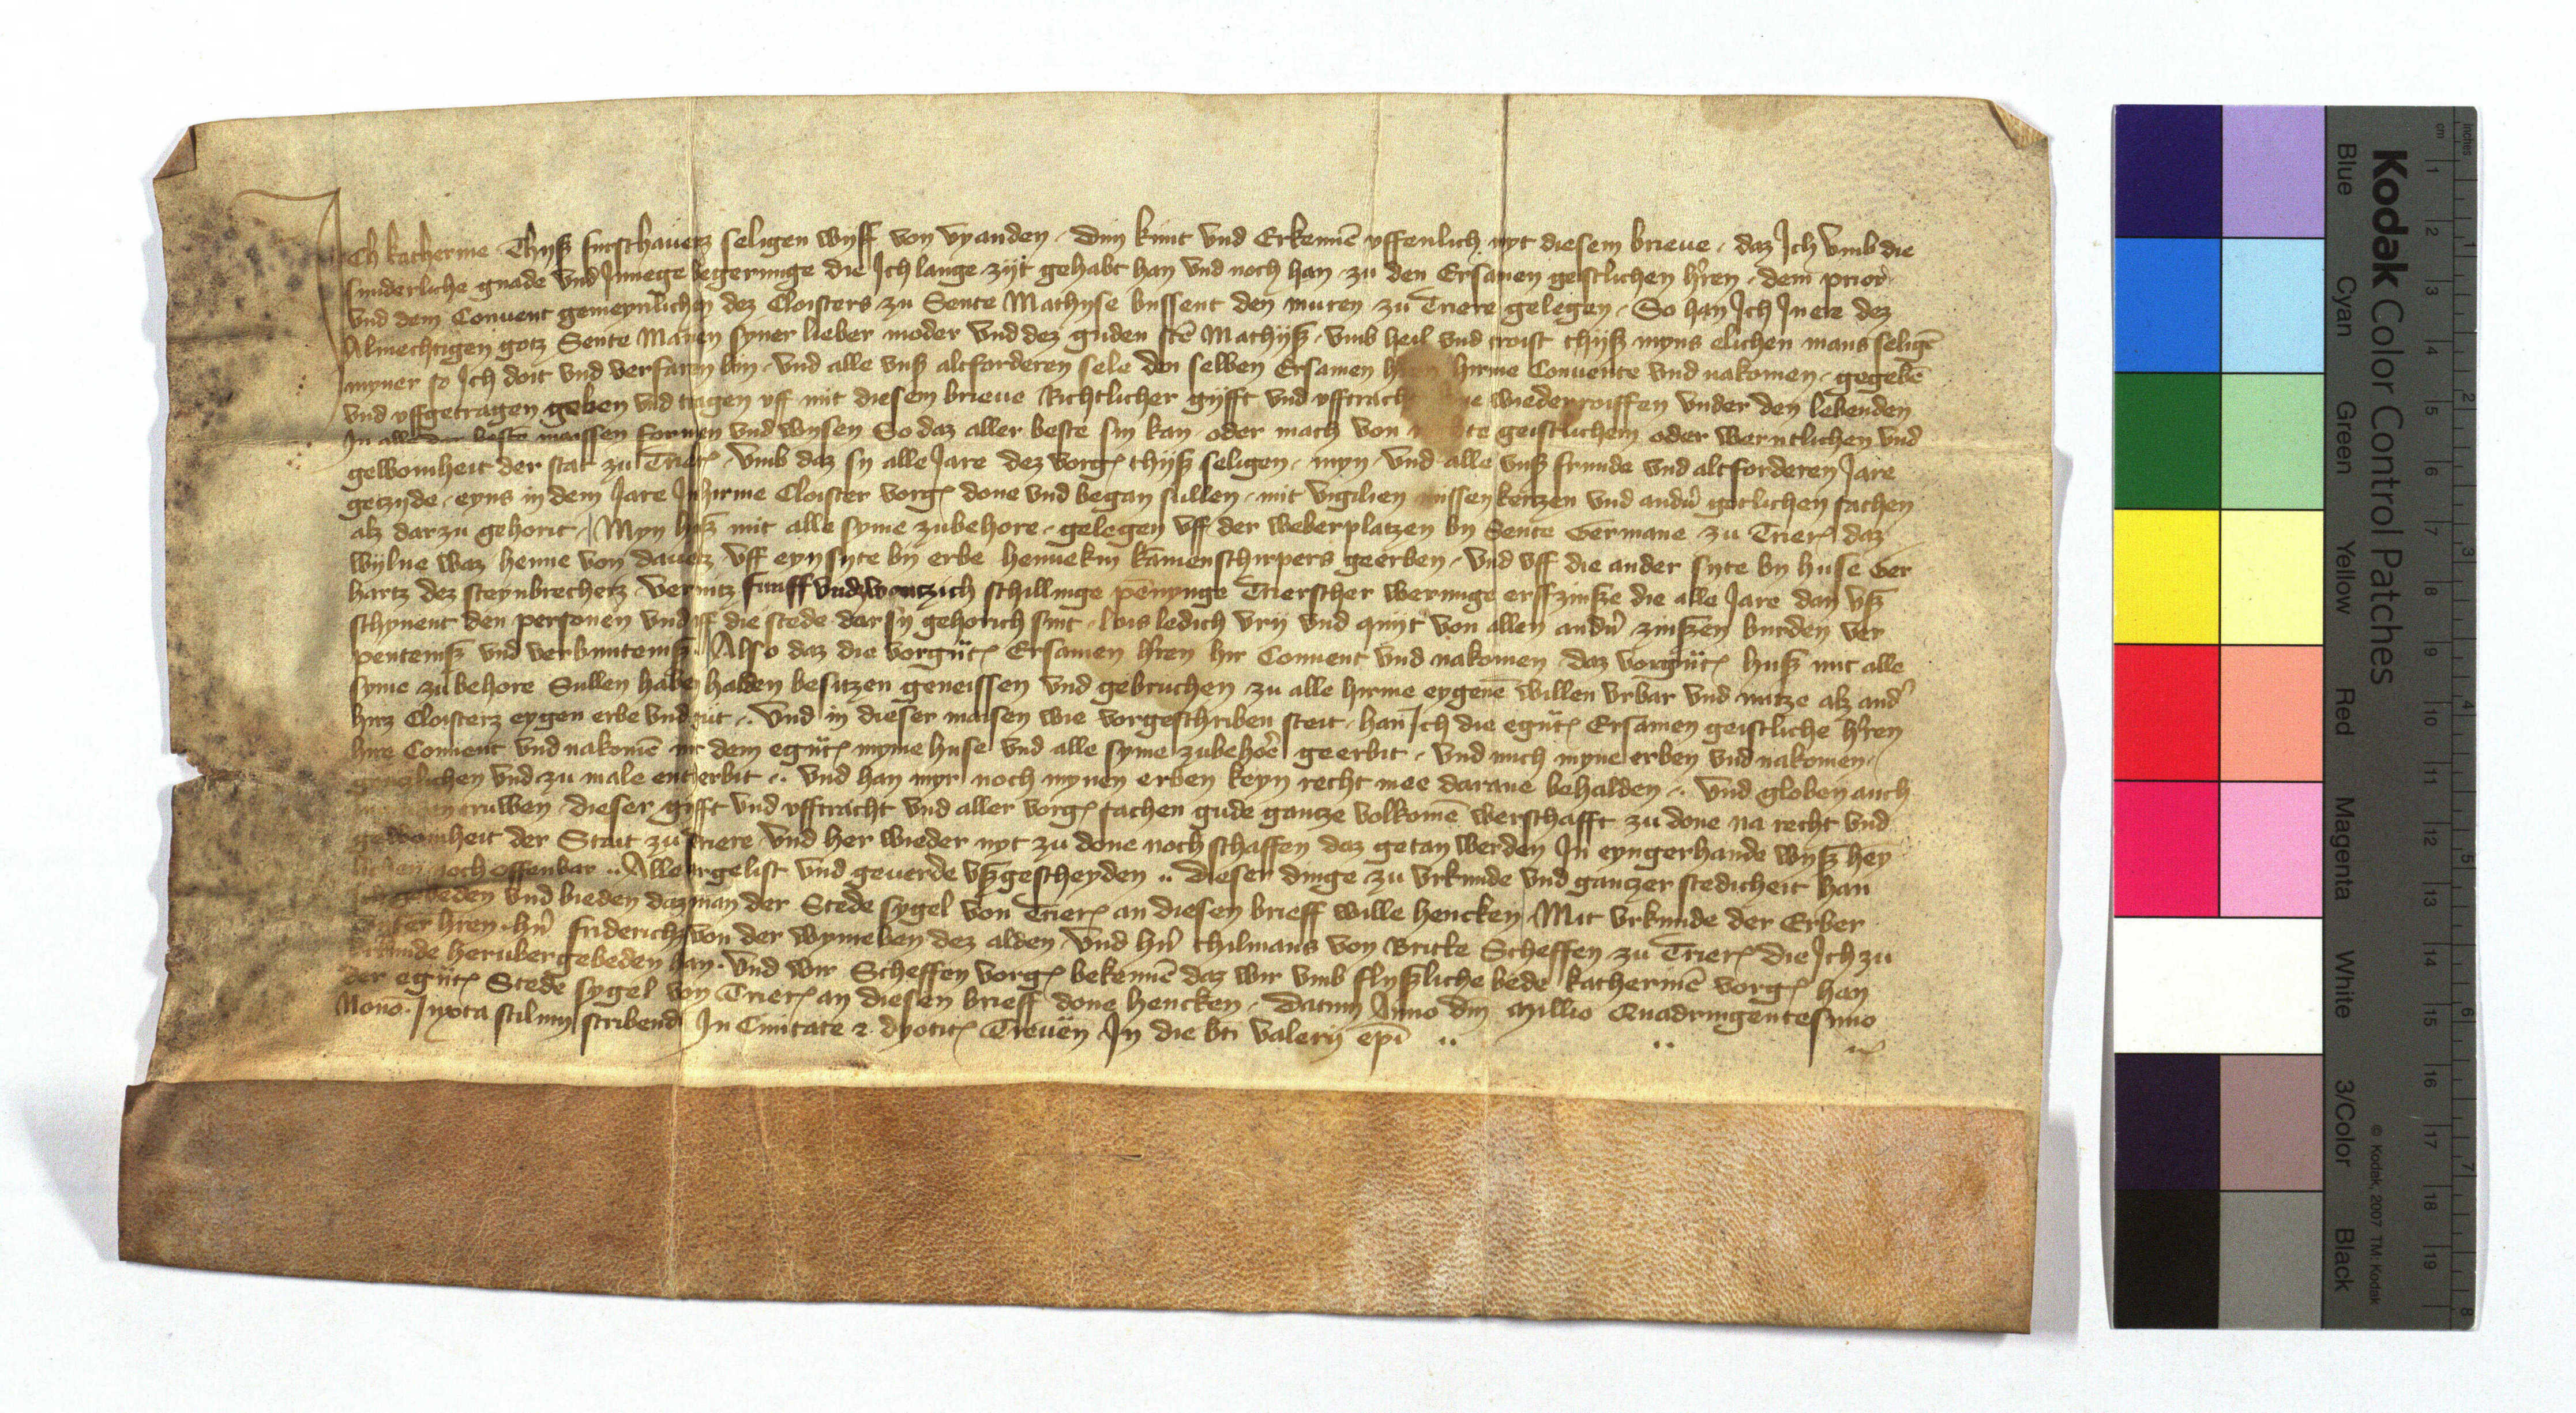 Ich katherine Thijß furschauerz seligen wyff von vyanden dun kunt vnd Erkennē vffenlich myt diesem brieue daz Ich vmb die
sunderliche gnade vnd Innege begerunge die Ich lange zijt gehabt han vnd noch han zu den Ersamen geistlichen hren dem prior
vnd dem Conuent gemeynlichen dez Cloisters zu Sente Mathyse bussent den muren zu Triere gelegen So han Ich In ere dez
Almechtigen gotz Sente Marien syner lieber moder vnd dez guden stē Mathijß vmb heil vnd troist thijß myns elichen mans seligē
myner so Ich doit vnd verfaren bin vnd alle vnß altforderen sele den selben Ersamen hren hirme Conuente vnd nakomen gegebē
vnd vffgetragen geben vnd tragen vff mit diesem brieue Richtlicher gyfft vnd vfftracht wiederroiffen vnder den lebenden
In alle der beste maissen formen vnd wysen So daz aller beste sin kan oder mach von geistlichem oder werntlichen vnd
gewonheit der stat zu Trier vmb daz sy alle Jare dez vorg thijß seligen myn vnd alle vnß frunde vnd altforderen Jare
getzijde eyns in dem Jare In hirme Cloister vorg done vnd began sullen mit vigilien missen kertzen vnd andn gotlichen sachen
alz darzu gehorit Myn huß mit alle syme zubehore gelegen vff der weberplatzen by Sente Germane zu Trier daz
wylne waz henne von dauerz vff eyn syte by erbe hennekin kamenschirpers geerben vnd vff die ander syte by huse Ger
hartz dez steynbrecherz vernutz funff vnd zwentzich schillinge pennynge Trierscher werunge erffzinße die alle Jare dan vß
schynent den personen vnd vff die stede dar sy gehorich sint lois ledich vry vnd quijt von allen andn zinßen burden ver
pentenisß vnd verbuntenisß Also daz die vorgūt Ersamen hren hir Conuent vnd nakomen daz vorgūt huß mit alle
syme zubehore Sullen haben halden besitzen geneissen vnd gebruchen zu alle hirme eygenē willen vrbar vnd nutze alz and
hirz Cloisterz eygen erbe vnd gut Vnd in dieser maisen wie vorgeschriben steit han Ich die egūt Ersamen geistliche hren
hire Conuent vnd nakomē mit dem egūt myme huse vnd alle syme zubehore geerbit vnd mich myne erben vnd nakomen
gentzlichen vnd zu male enterbit vnd han myr noch mynen erben keyn recht mee darane behalden Vnd globen auch
truwen dieser gifft vnd vfftracht vnd aller vorg sachen gude gantze volkomē werschafft zu done na recht vnd
gewonheit der Stait zu Triere vnd her wieder nyt zu done noch schaffen daz getan werden In eyngerhande wyß hey
lichen noch offenbar Alle argelist vnd geuerde vßgescheyden dieser dinge zu vrkunde vnd gantzer stedicheit han
Ich gebeden vnd bieden daz man der Stede sygel von Trier an diesen brieff wille hencken Mit vrkunde der Erber
hren hn friderichz von der wyneben dez alden vnd hn thilmans von Britte Scheffen zu Trier die Ich zu
vrkunde herubergebeden han Vnd wir Scheffen vorg bekennē daz wir vmb flyßliche bede katherinē vorg han
der egūt Stede sygel von Trier an diesen brieff done hencken Datum Anno dni Millio Quadringentesimo
Nono Juxta stilum scribendi In Ciuitate & dyoc Treueren In die bti valerij epi
Kodak Color Control Patches
© Kodak, 2007 TM: Kodak
Blue Cyan Green Yellow Red Magenta White 3/Color Black
inches 1 2 3 4 5 6 7 8
cm 1 2 3 4 5 6 7 8 9 10 11 12 13 14 15 16 17 18 19